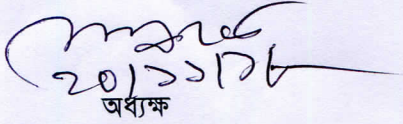 ২০/১১/১৮
অধ্যক্ষ